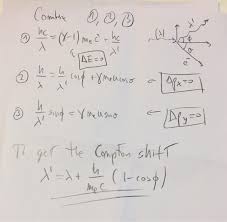 Combine ①, ②, ③
① hc/λ = (γ-1) m₀c² + hc/λ'
ΔE=0
② h/λ = h/λ' cosϕ + γm₀u cosθ ⇐ Δpₓ=0
③ h/λ' sinϕ = γm₀u sinθ ⇐ Δp_y=0
To get the Compton shift
λ' = λ + h/m₀c (1-cosϕ)